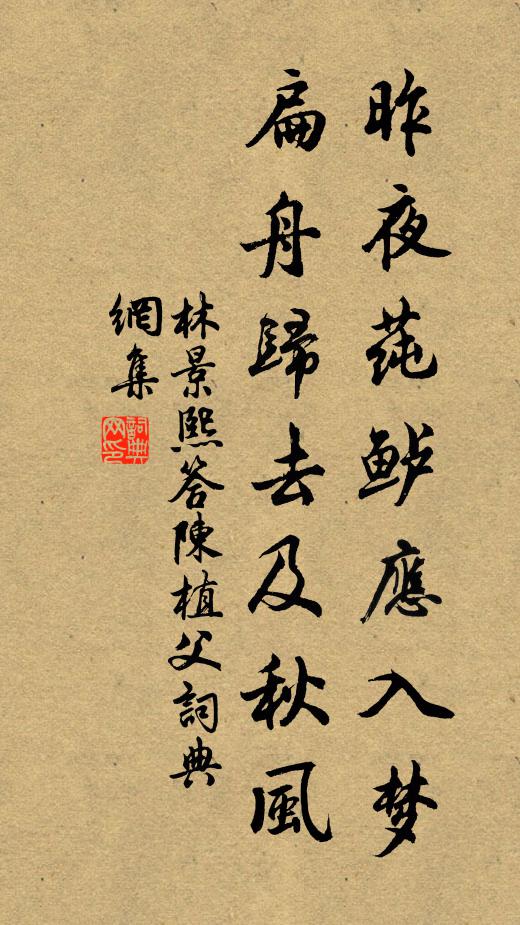 昨夜莼鲈應入梦
扁舟歸去及秋風
林景熙答陳植父詞典
網集
詞典
网印